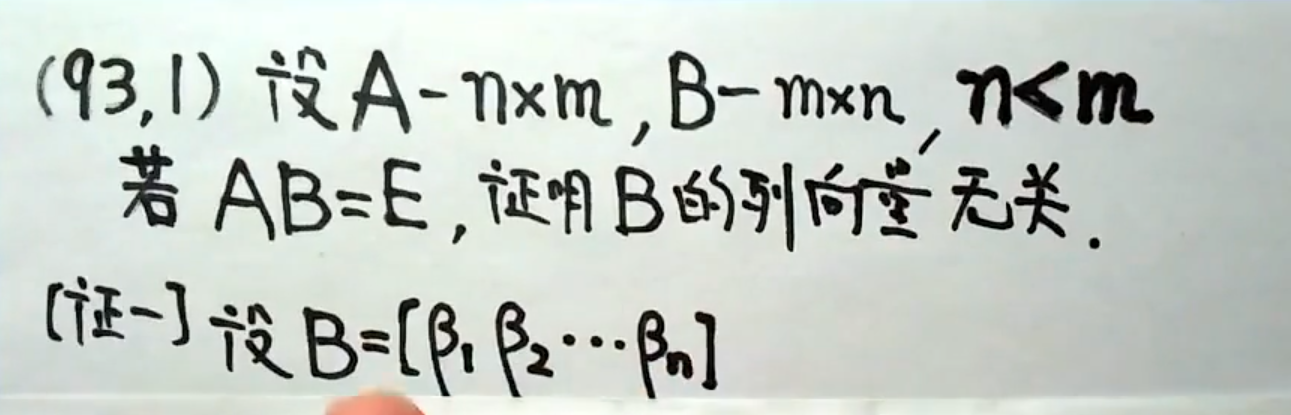 (93,1) 设A-n×m,B-m×n,n<m
若AB=E,证明B的列向量无关.
[证一]设B=[β₁ β₂…βn]